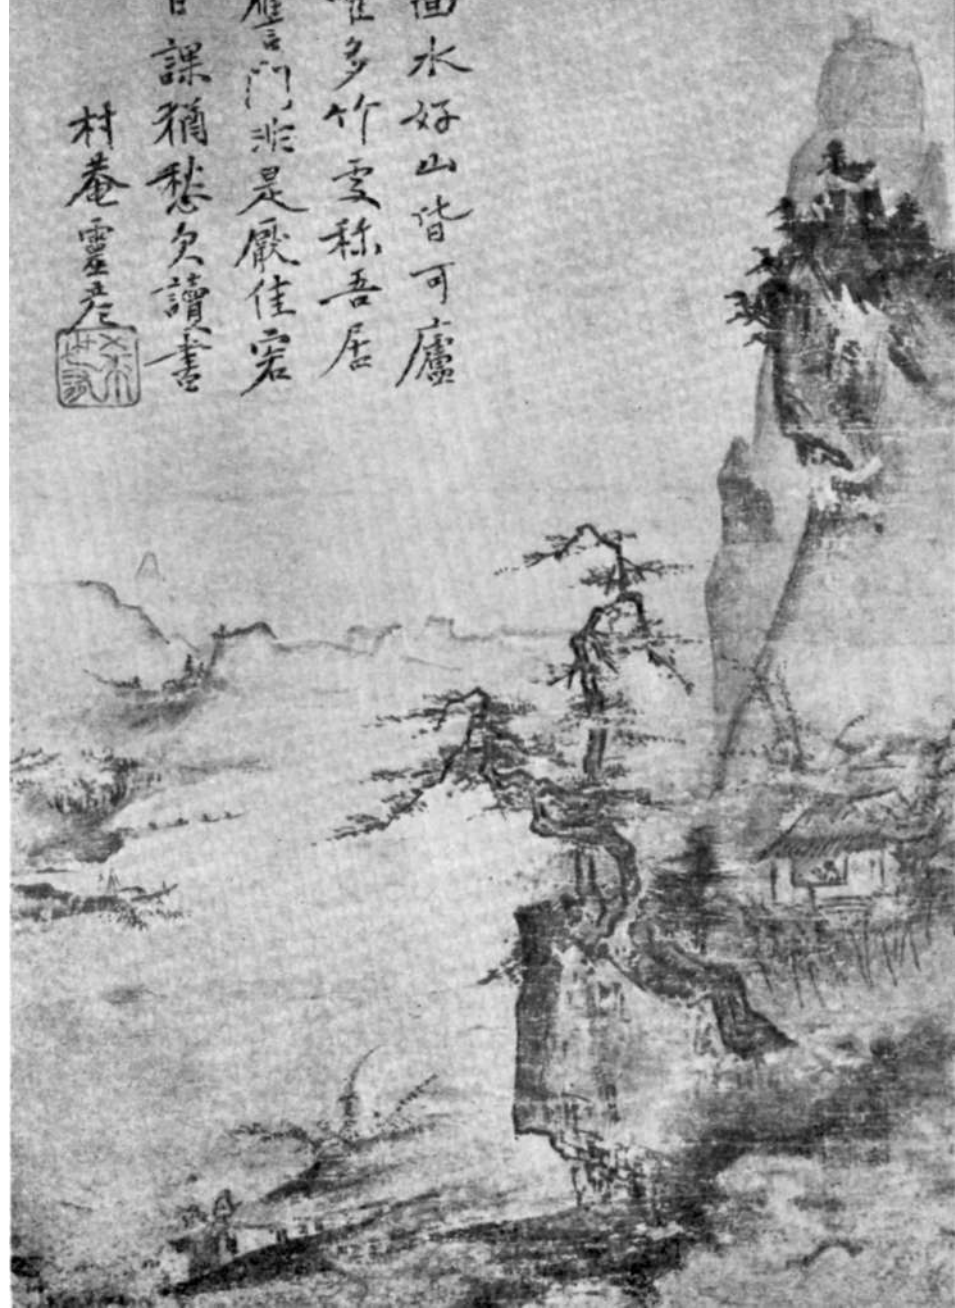 水好山皆可廬
多竹處称吾居
譍門非是厭佳客
日課猶愁欠讀書
村菴靈彦